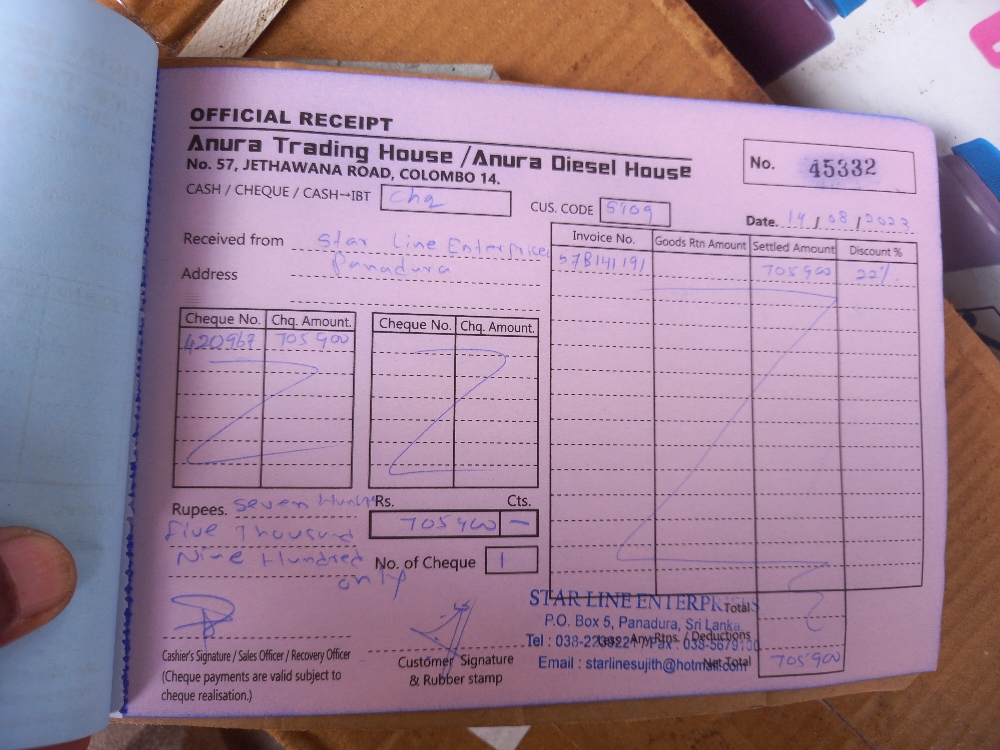 OFFICIAL RECEIPT
Anura Trading House / Anura Diesel House
No. 57, JETHAWANA ROAD, COLOMBO 14.
No. 45332
CASH / CHEQUE / CASH→IBT chq
CUS. CODE 5709
Date. 14 / 08 / 2023
Received from Star Line Enterprices
Address Panadura
Invoice No. Goods Rtn Amount Settled Amount Discount %
57B141191 705900 22%
Cheque No. Chq. Amount. Cheque No. Chq. Amount.
420967 705900
Rupees. Seven Hund
Five Thousand
Nine Hundred
only
Rs. Cts.
705900 —
No. of Cheque 1
Cashier's Signature / Sales Officer / Recovery Officer
(Cheque payments are valid subject to
cheque realisation.)
Customer Signature
& Rubber stamp
STAR LINE ENTERPRISES
P.O. Box 5, Panadura, Sri Lanka.
Tel : 038- Fax : 038-
Email : starlinesujith@hotmail.com
Total
Less: Any Rtns. / Deductions
Net Total 705900